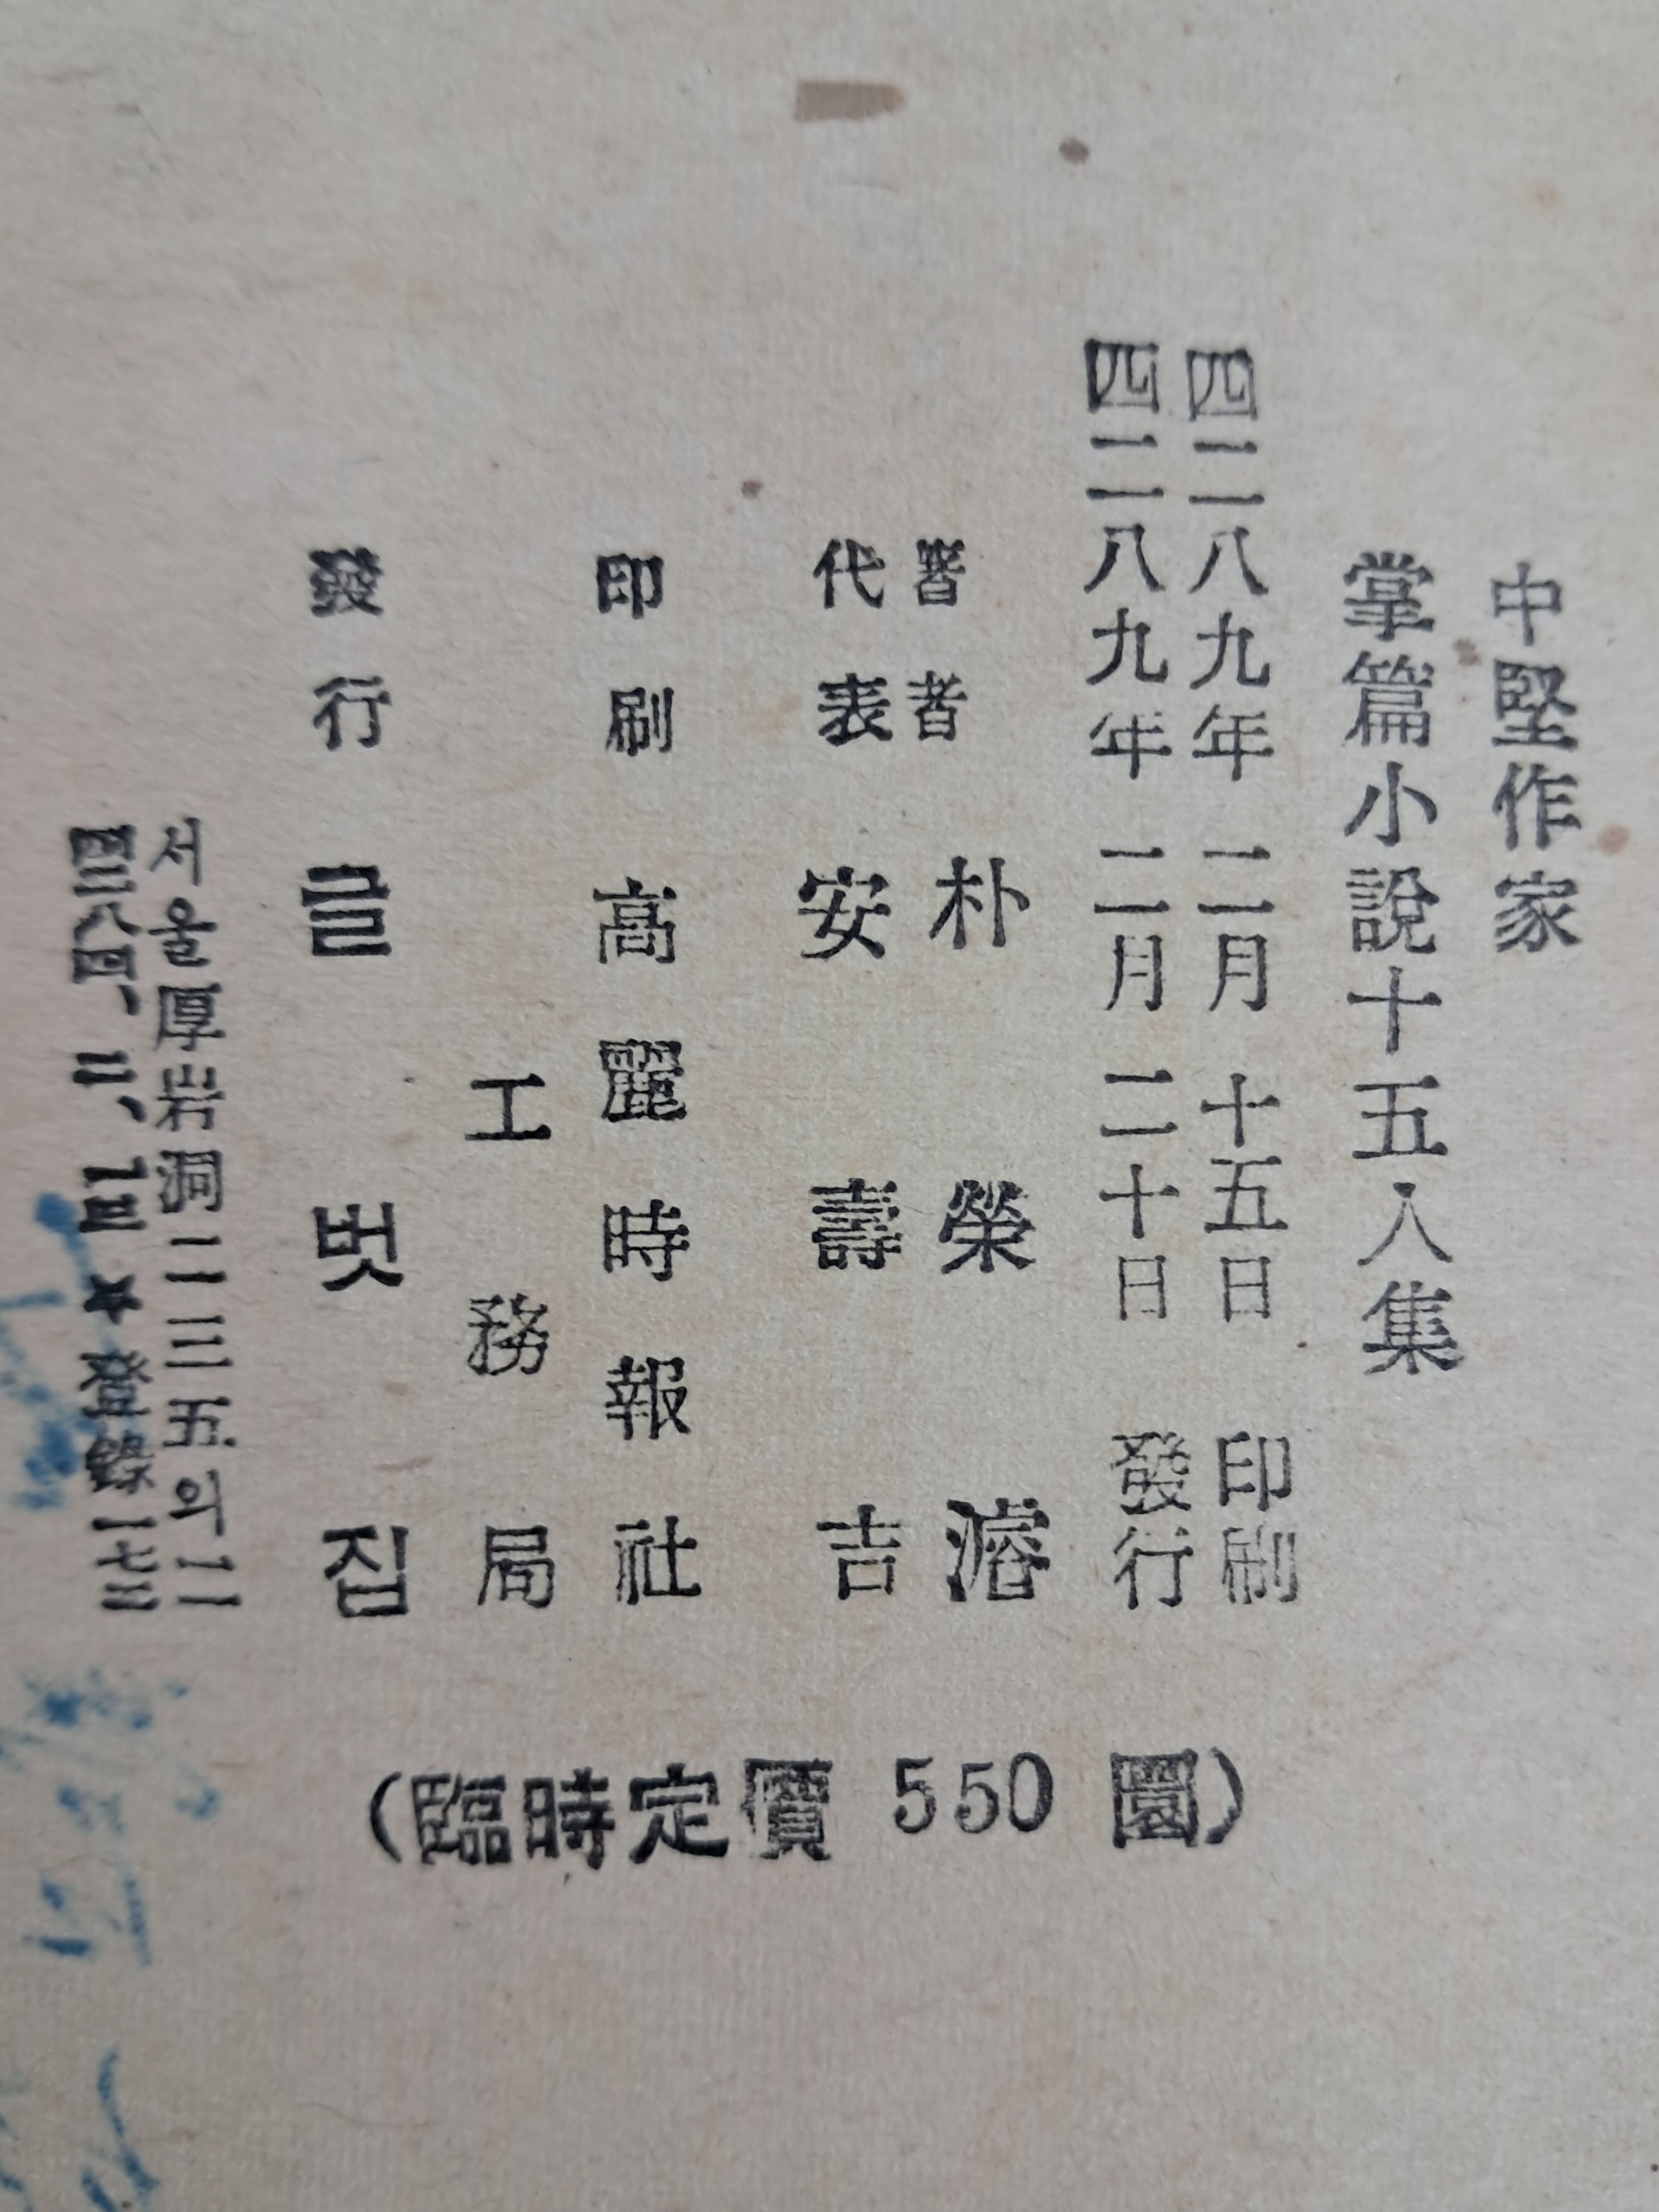 中堅作家
掌篇小說十五人集
四二八九年 二月 十五日 印刷
四二八九年 二月 二十日 發行
著者 朴榮濬
代表 安壽吉
印刷 高麗時報社
工務局
發行 글벗집
서울厚岩洞二三五의二
四二八四、二、一四★登錄一七三
(臨時定價 550 圜)